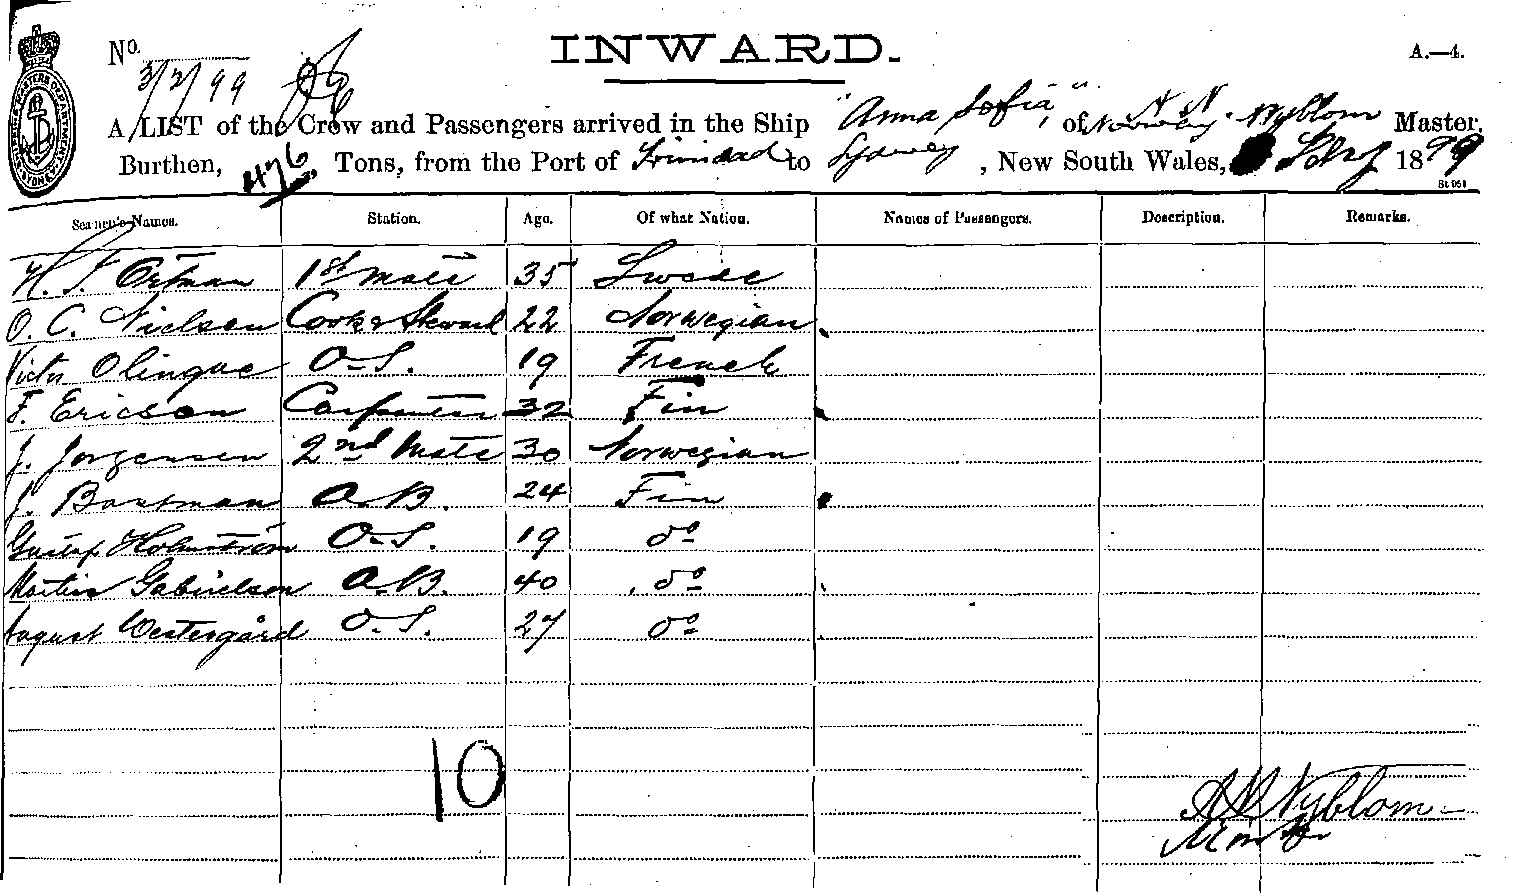 INWARD.
No.
A.—4.
3/2/99
A LIST of the Crew and Passengers arrived in the Ship "Anna Sofia", of Norway A. N. Nyblom Master,
Burthen, 476 Tons, from the Port of Trinidad to Sydney, New South Wales, Febry 1899
St 951
Seamen's Names. Station. Age. Of what Nation. Names of Passengers. Description. Remarks.
H. F. Ortman 1st Mate 35 Swede
O. C. Nielsen Cook & Steward 22 Norwegian
Victor Olingue O.S. 19 French
F. Ericson Carpenter 32 Fin
J. Jorgensen 2nd Mate 30 Norwegian
J. Bostman A.B. 24 Fin
Gustaf Holmström O.S. 19 do
Martin Gabrielson A.B. 40 do
August Westergård O.S. 27 do
10
A N Nyblom
Master